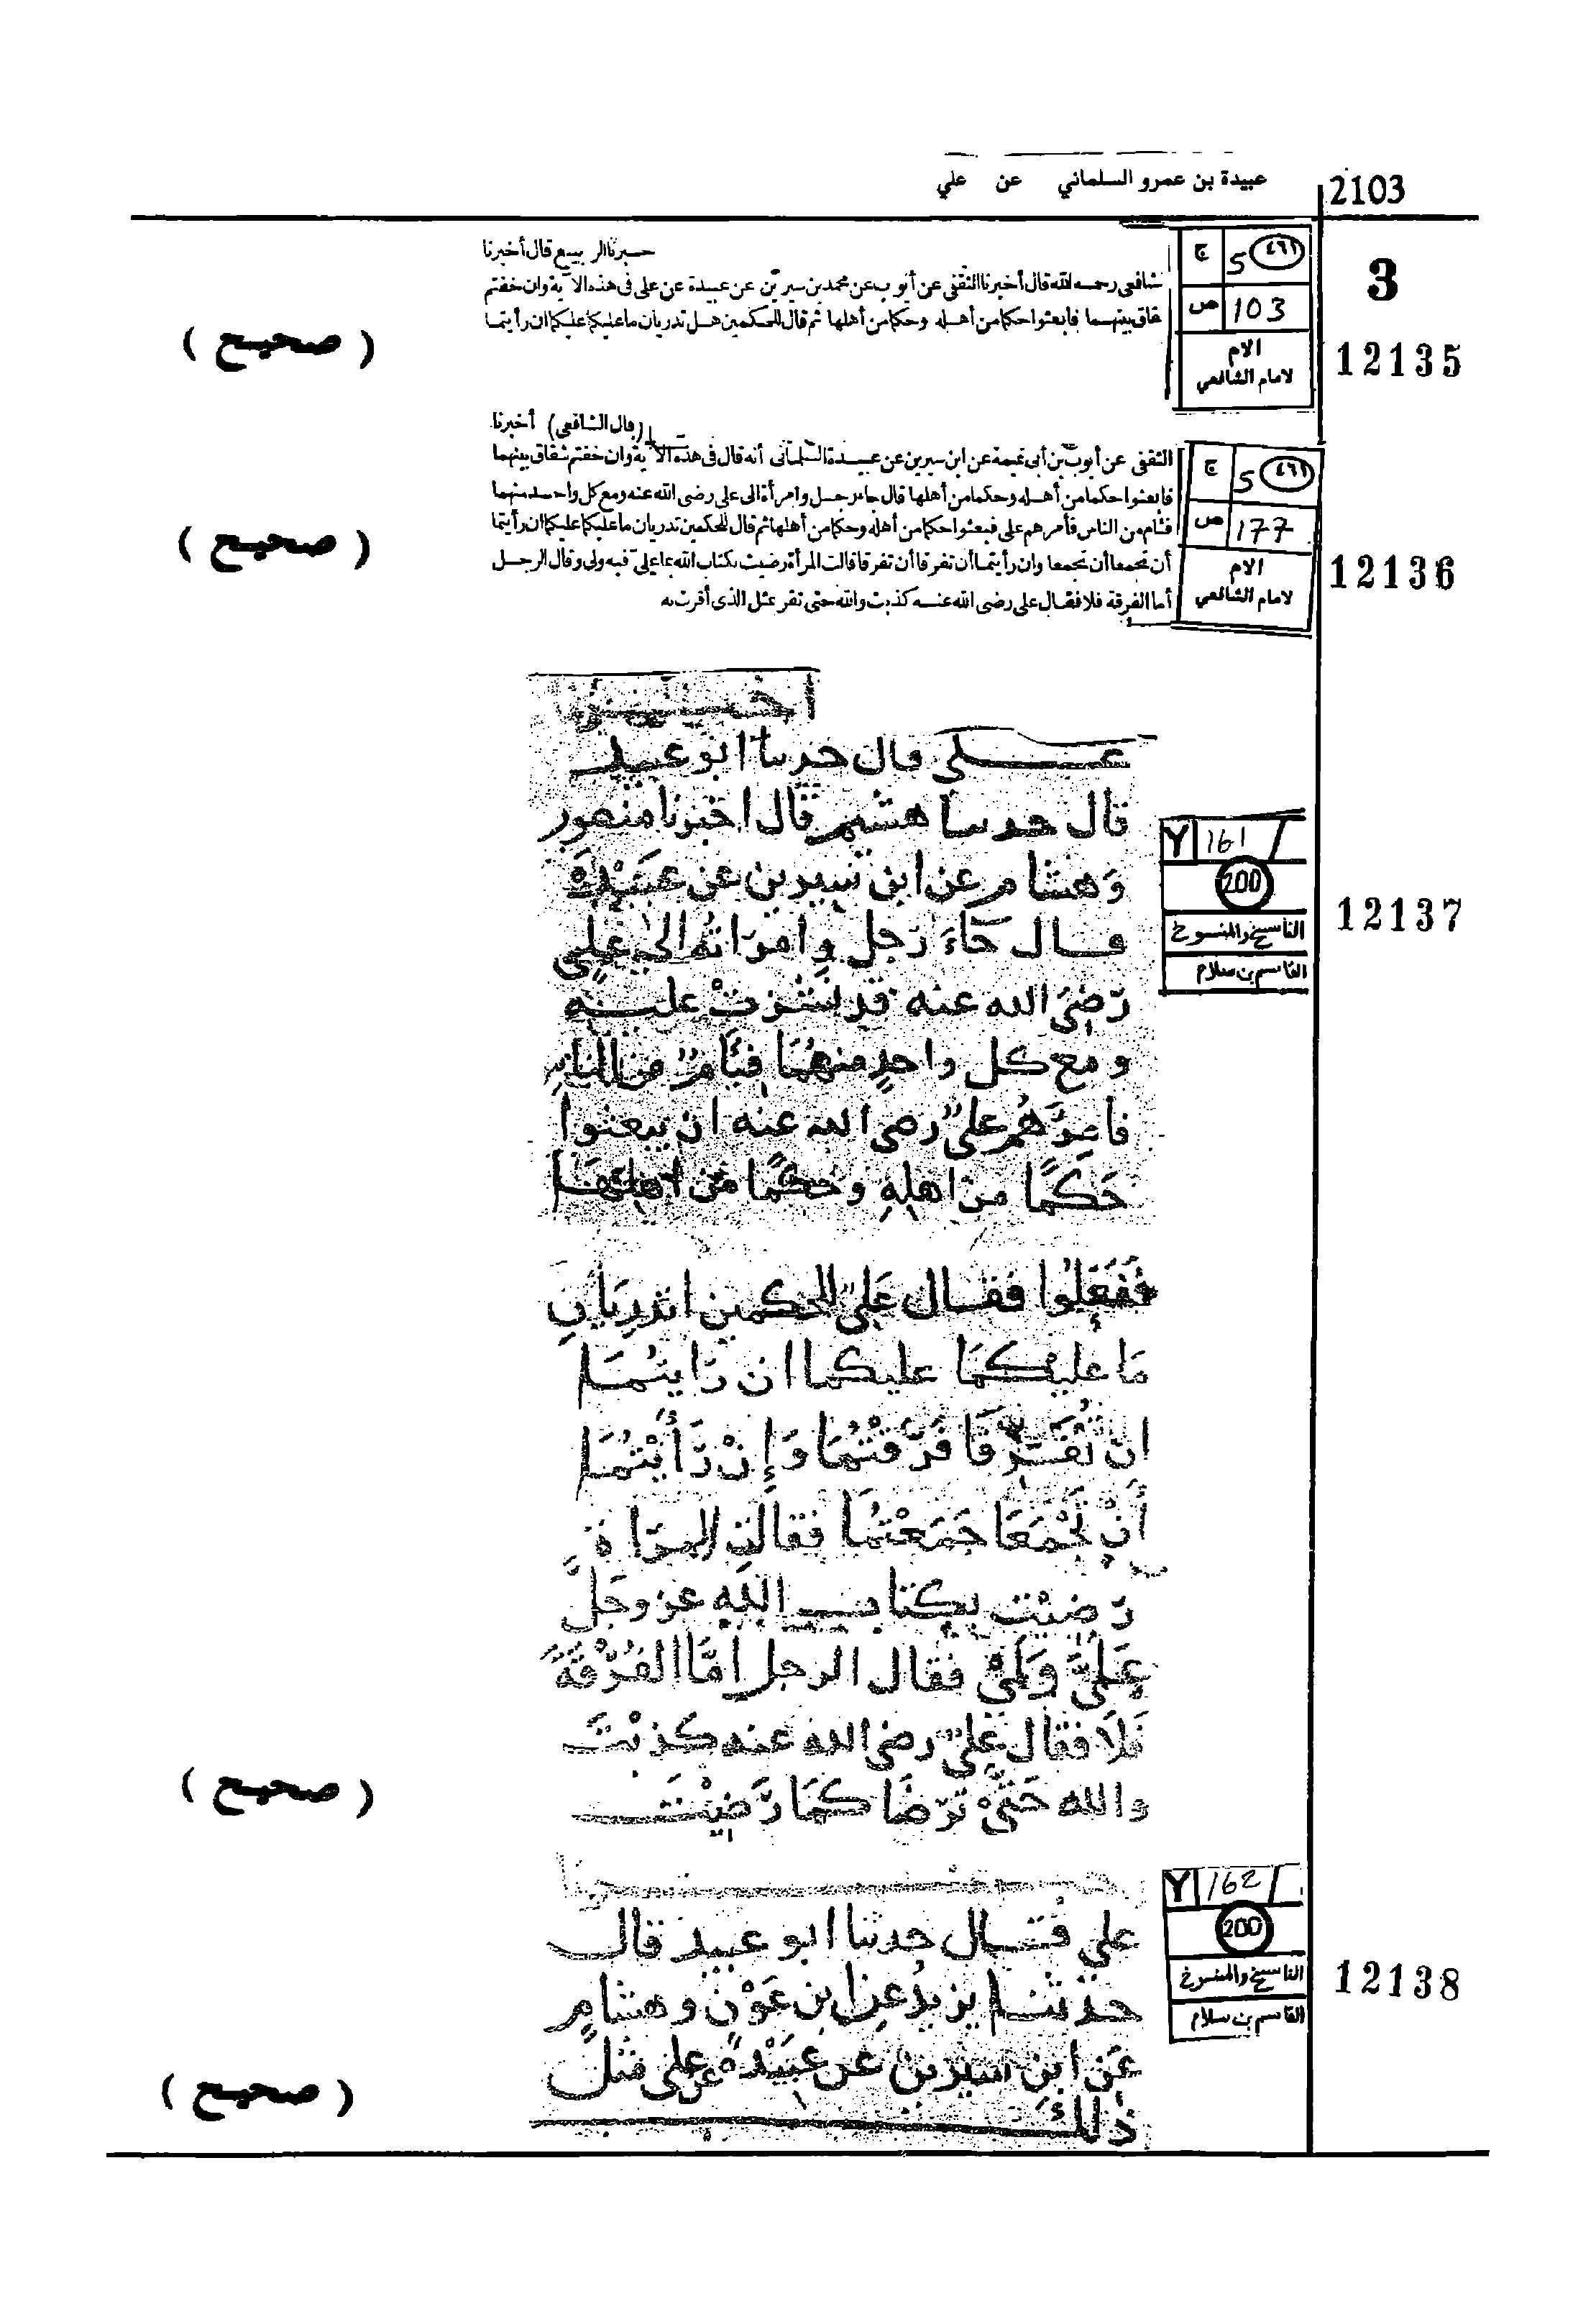 2103
عبيدة بن عمرو السلماني عن علي
3
12135
٤٦١ 5 ج
103 ص
الام
لامام الشافعي
الربيع قال أخبرنا
شافعى رحمه الله قال أخبرنا الثقفى عن أيوب عن محمد بن سيرين عن عبيدة عن على فى هذه الآية وان خفتم
قاق بينهما فابعثوا حكما من أهله وحكما من أهلها ثم قال للحكمين هل تدريان ما عليكما عليكما ان رأيتما
( صحيح )
12136
٤٦١ 5 ج
177 ص
الام
لامام الشافعي
(قال الشافعى) أخبرنا
الثقفى عن أيوب بن أبى تميمة عن ابن سيرين عن عبيدة السلمانى أنه قال فى هذه الآية وان خفتم شقاق بينهما
فابعثوا حكما من أهله وحكما من أهلها قال جاء رجل وامرأة الى على رضى الله عنه ومع كل واحد منهما
فئام من الناس فأمرهم على فبعثوا حكما من أهله وحكما من أهلها ثم قال للحكمين تدريان ما عليكما عليكما ان رأيتما
أن تجمعا أن تجمعا وان رأيتما أن تفرقا أن تفرقا قالت المرأة رضيت بكتاب الله بما على فيه ولى وقال الرجل
أما الفرقة فلا فقال على رضى الله عنه كذبت والله حتى تقر بمثل الذى أقرت به
( صحيح )
12137
161
200
الناسخ والمنسوخ
القاسم بن سلام
اخبرنا
علي قال حدثنا ابو عبيد
قال حدثنا هشيم قال اخبرنا منصور
وَهشام عن ابن سيرين عن عَبيْدة
قال جَاءَ رَجل وامرَاته الى علي
رَضيَ الله عنه قد نشزتْ عليه
ومع كل واحدٍ منهُمَا فئَامٌ من الناس
فامرَهُم عليٌّ رضي الله عنه ان يبعثوا
حَكمًا من اهلِه وحَكمًا من اهلهَا
ففَعَلوا فقال عَليٌّ للحكمين اتدرِيَانِ
مَا عليكمَا عليكما ان رَايتمَا
ان تُفَرِّقَا فَرَّقتُمَا وَإِنْ رَأَيْتُمَا
أَنْ تَجْمَعَا جَمَعْتُمَا فقالت المرَاة
رَضيْت بكتاب الله عز وجَلَّ
عَلَيَّ وَلِيْ فقال الرجل امَّا الفُرْقَةُ
فَلَا فقال عليٌّ رضي الله عنه كذبْتَ
والله حَتىْ ترْضَا كمَا رَضِيْت
( صحيح )
12138
162
200
الناسخ والمنسوخ
القاسم بن سلام
علي قال حدثنا ابو عبيد قال
حدثنا يزيدُ عن ابن عَوْن وهشامٍ
عَن ابنِ سيرين عن عَبيْدةَ عن علي مثل
ذلك
( صحيح )